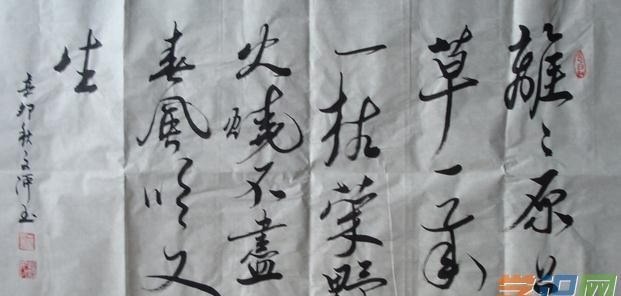 離々原上
草一歲
一枯榮野
火燒不盡
春風吹又
生
卯秋文